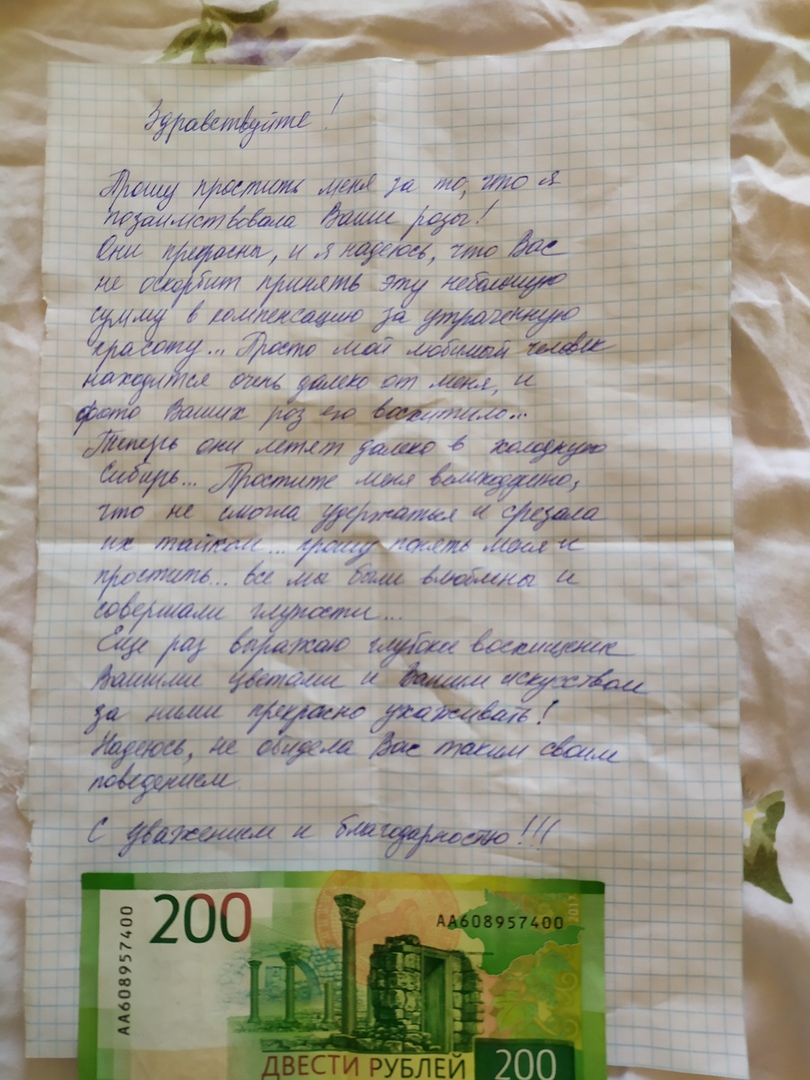 Здравствуйте!
Прошу простить меня за то, что я
позаимствовала Ваши розы!
Они прекрасны, и я надеюсь, что Вас
не оскорбит принять эту небольшую
сумму в компенсацию за утраченную
красоту... Просто мой любимый человек
находится очень далеко от меня, и
фото Ваших роз его восхитило...
Теперь они летят далеко в холодную
Сибирь... Простите меня великодушно,
что не смогла удержаться и срезала
их тайком... прошу понять меня и
простить... все мы были влюблены и
совершали глупости...
Еще раз выражаю глубокое восхищение
Вашими цветами и Вашим искусством
за ними прекрасно ухаживать!
Надеюсь, не обидела Вас таким своим
поведением.
С уважением и благодарностью!!!
200
АА608957400
АА608957400
2017
ДВЕСТИ РУБЛЕЙ
200